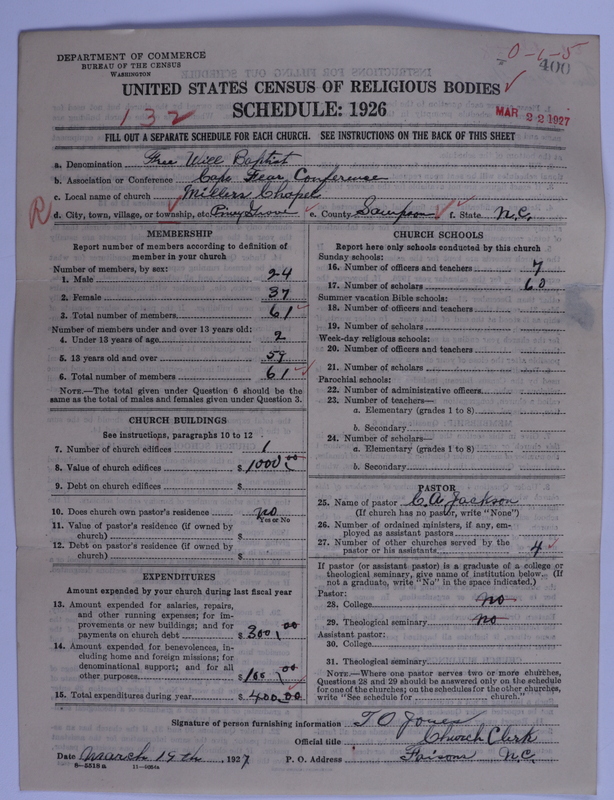 DEPARTMENT OF COMMERCE
BUREAU OF THE CENSUS
WASHINGTON
0-1-5
400
UNITED STATES CENSUS OF RELIGIOUS BODIES
132
SCHEDULE: 1926
MAR 22 1927
FILL OUT A SEPARATE SCHEDULE FOR EACH CHURCH. SEE INSTRUCTIONS ON THE BACK OF THIS SHEET
a. Denomination Free Will Baptist
b. Association or Conference Cape Fear Conference
c. Local name of church Millers Chapel
R d. City, town, village, or township, etc. Piney Grove e. County Sampson f. State N.C.
MEMBERSHIP
Report number of members according to definition of
member in your church
Number of members, by sex:
1. Male 24
2. Female 37
3. Total number of members 61
Number of members under and over 13 years old:
4. Under 13 years of age 2
5. 13 years old and over 59
6. Total number of members 61
NOTE.—The total given under Question 6 should be the
same as the total of males and females given under Question 3.
CHURCH BUILDINGS
See instructions, paragraphs 10 to 12
7. Number of church edifices 1
8. Value of church edifices $ 1000.00
9. Debt on church edifices $
10. Does church own pastor's residence no
Yes or No
11. Value of pastor's residence (if owned by
church) $
12. Debt on pastor's residence (if owned by
church) $
EXPENDITURES
Amount expended by your church during last fiscal year
13. Amount expended for salaries, repairs,
and other running expenses; for im-
provements or new buildings; and for
payments on church debt $ 300.00
14. Amount expended for benevolences, in-
cluding home and foreign missions; for
denominational support; and for all
other purposes $ 100.00
15. Total expenditures during year $ 400.00
CHURCH SCHOOLS
Report here only schools conducted by this church
Sunday schools:
16. Number of officers and teachers 7
17. Number of scholars 60
Summer vacation Bible schools:
18. Number of officers and teachers
19. Number of scholars
Week-day religious schools:
20. Number of officers and teachers
21. Number of scholars
Parochial schools:
22. Number of administrative officers
23. Number of teachers—
a. Elementary (grades 1 to 8)
b. Secondary
24. Number of scholars—
a. Elementary (grades 1 to 8)
b. Secondary
PASTOR
25. Name of pastor C. A. Jackson
(If church has no pastor, write "None")
26. Number of ordained ministers, if any, em-
ployed as assistant pastors
27. Number of other churches served by the
pastor or his assistants 4
If pastor (or assistant pastor) is a graduate of a college or
theological seminary, give name of institution below. (If
not a graduate, write "No" in the space indicated.)
Pastor:
28. College no
29. Theological seminary no
Assistant pastor:
30. College
31. Theological seminary
NOTE.—Where one pastor serves two or more churches,
Questions 28 and 29 should be answered only on the schedule
for one of the churches; on the schedules for the other churches,
write "See schedule for church."
Signature of person furnishing information T O Jones
Official title Church Clerk
Date March 19th 1927 P. O. Address Faisons N.C.
8-5518a 11-9054a